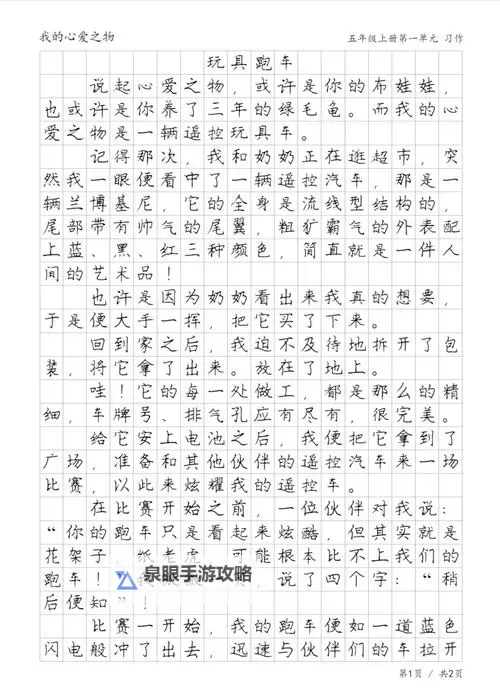 我的心爱之物 五年级上册第一单元 习作
玩具跑车
说起心爱之物，或许是你的布娃娃，
也或许是你养了三年的绿毛龟。而我的心
爱之物是一辆遥控玩具车。
记得那次，我和奶奶正在逛超市，突
然我一眼便看中了一辆遥控汽车，那是一
辆兰博基尼，它的全身是流线型结构的，
尾部带有帅气的尾翼，粗犷霸气的外表配
上蓝、黑、红三种颜色，简直就是一件人
间的艺术品！
也许是因为奶奶看出来我真的想要，
于是便大手一挥，把它买了下来。
回到家之后，我迫不及待地拆开了包
装，将它拿了出来。放在了地上。
哇！它的每一处做工，都是那么的精
细，车牌号、排气孔应有尽有，很完美。
给它安上电池之后，我便把它拿到了
广场，准备和其他伙伴的遥控汽车来一场
比赛，以此来炫耀我的遥控车。
在比赛开始之前，一位伙伴对我说：
“你的跑车只是看起来炫酷，但其实就是
花架子，纸老虎，可能根本比不上我们的
跑车！ 说了四个字：“稍
后便知”！
泉眼手游攻略
比赛一开始，我的跑车便如一道蓝色
闪电般冲了出去，迅速与伙伴们的车拉开
第1页 / 共2页